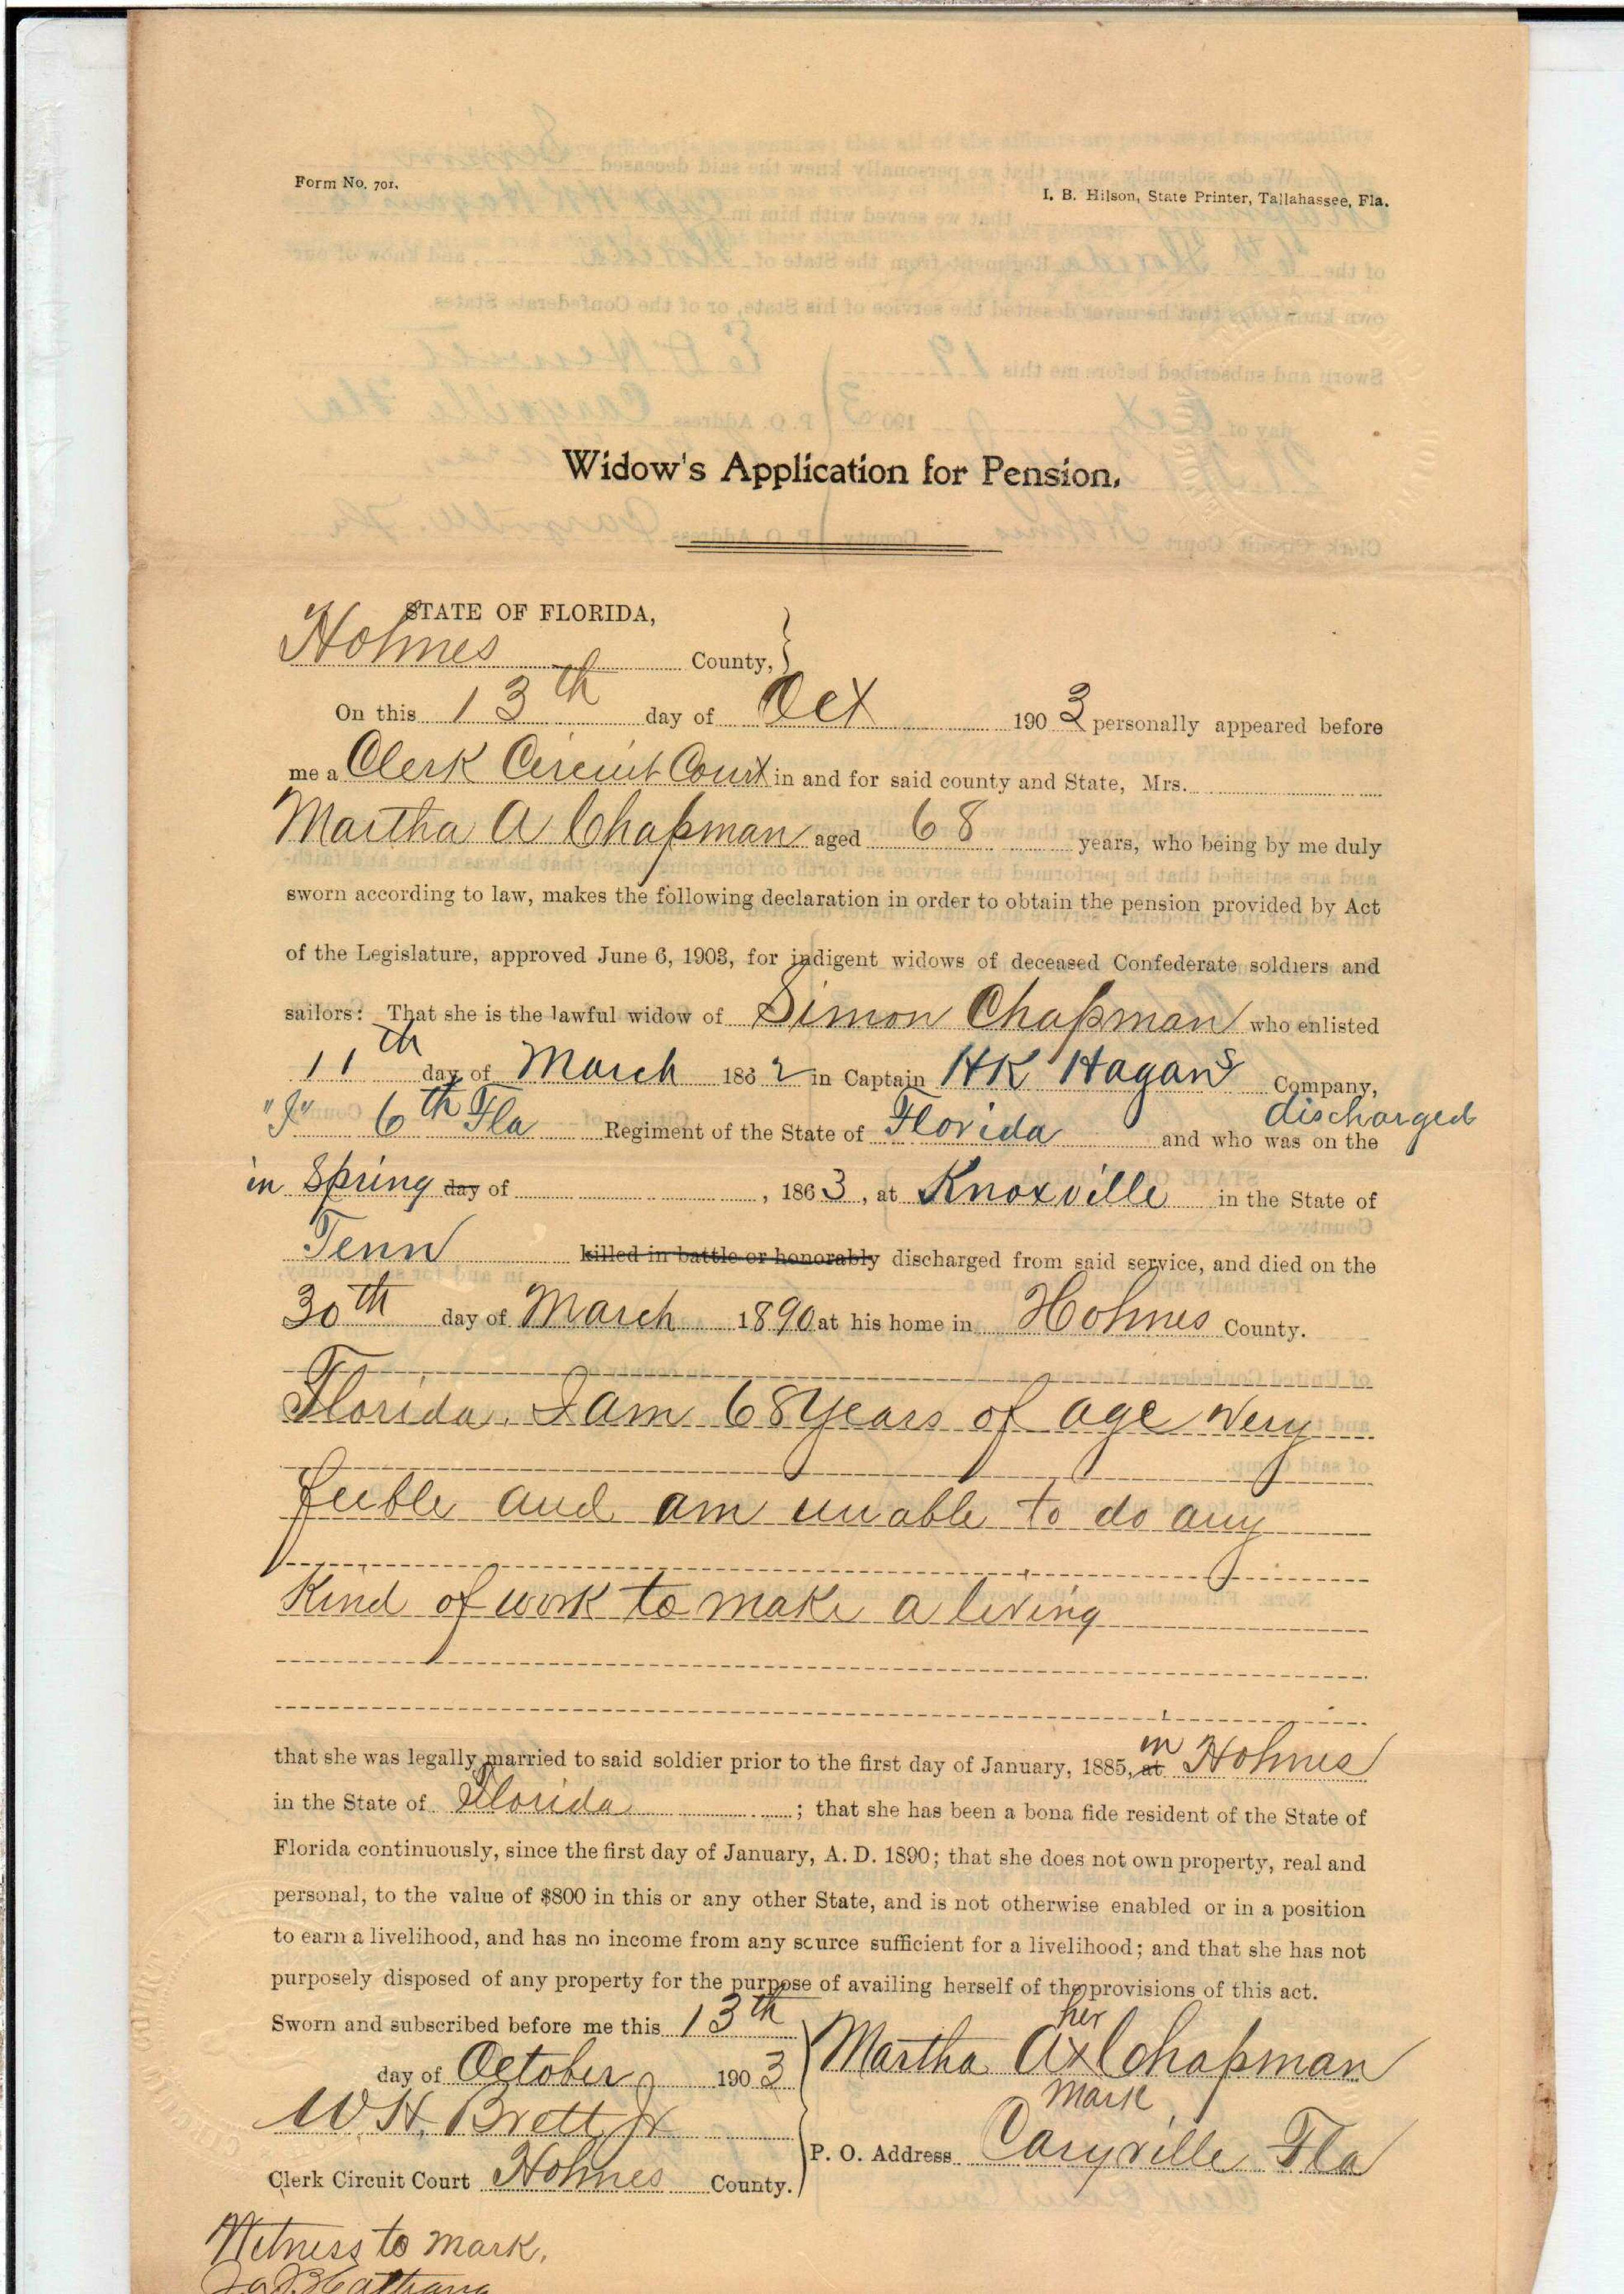 Form No. 701.
I. B. Hilson, State Printer, Tallahassee, Fla.
Widow's Application for Pension.
STATE OF FLORIDA,
Holmes County,
On this 13th day of Oct 1903 personally appeared before
me a Clerk Circuit Court in and for said county and State, Mrs.
Martha A Chapman aged 68 years, who being by me duly
sworn according to law, makes the following declaration in order to obtain the pension provided by Act
of the Legislature, approved June 6, 1903, for indigent widows of deceased Confederate soldiers and
sailors: That she is the lawful widow of Simon Chapman who enlisted
11th day of March 1862 in Captain HK Hagans Company,
6th Fla Regiment of the State of Florida and who was on the discharged
in Spring day of , 1863, at Knoxville in the State of
Tenn killed in battle or honorably discharged from said service, and died on the
30th day of March 1890 at his home in Holmes County.
Florida. I am 68 years of age very
feeble and am unable to do any
Kind of work to make a living
that she was legally married to said soldier prior to the first day of January, 1885, at in Holmes
in the State of Florida ; that she has been a bona fide resident of the State of
Florida continuously, since the first day of January, A. D. 1890; that she does not own property, real and
personal, to the value of $800 in this or any other State, and is not otherwise enabled or in a position
to earn a livelihood, and has no income from any source sufficient for a livelihood; and that she has not
purposely disposed of any property for the purpose of availing herself of the provisions of this act.
Sworn and subscribed before me this 13th
day of October 1903
W. H. Brett Jr
Clerk Circuit Court Holmes County.
her
Martha A x Chapman
mark
P. O. Address Caryville Fla
Witness to mark,